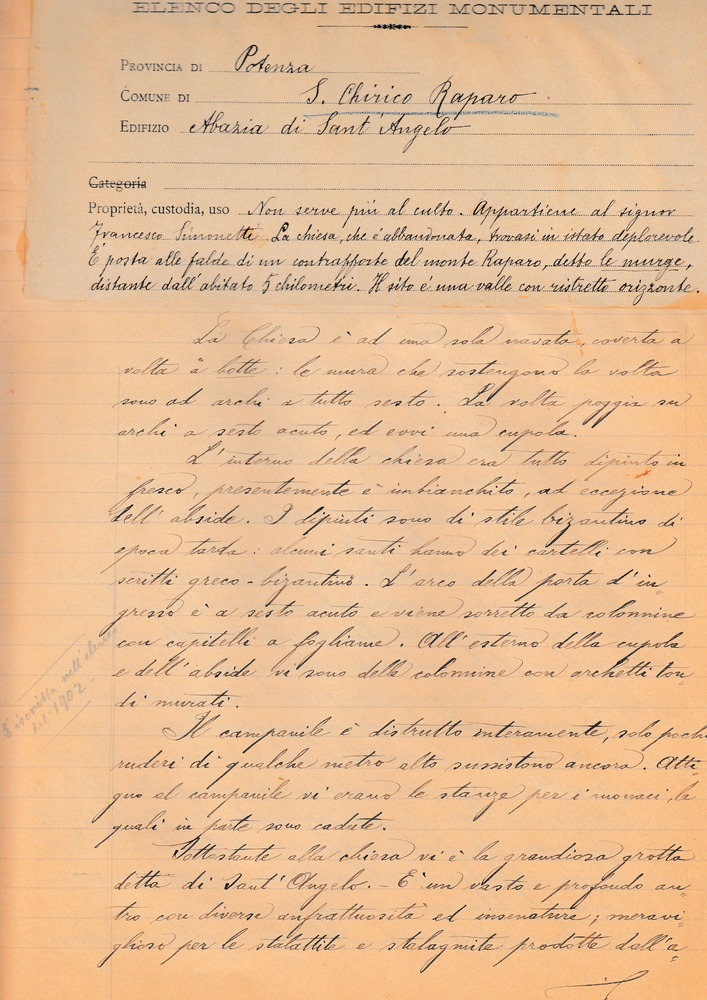 ELENCO DEGLI EDIFIZI MONUMENTALI
PROVINCIA DI Potenza
COMUNE DI S. Chirico Raparo
EDIFIZIO Abazia di Sant'Angelo
Categoria
Proprietà, custodia, uso Non serve più al culto. Appartiene al signor
Francesco Simonetti. La chiesa, che è abbandonata, trovasi in istato deplorevole.
E' posta alle falde di un contrafforte del monte Raparo, detto le murge,
distante dall'abitato 5 chilometri. Il sito è una valle con ristretto orizzonte.
La Chiesa è ad una sola navata, coverta a
volta a botte: le mura che sostengono la volta
sono ad archi a tutto sesto. La volta poggia su
archi a sesto acuto, ed evvi una cupola.
L'interno della chiesa era tutto dipinto in
fresco, presentemente è imbianchito, ad eccezione
dell'abside. I dipinti sono di stile bizantino di
epoca tarda: alcuni santi hanno dei cartelli con
scritti greco-bizantino. L'arco della porta d'in-
gresso è a sesto acuto e viene sorretto da colonnine
con capitelli a fogliame. All'esterno della cupola
e dell'abside vi sono delle colonnine con archetti ton-
di murati.
S'iscritta nell'elenco
del 1902
Il campanile è distrutto interamente, solo pochi
ruderi di qualche metro alto sussistono ancora. Atti-
guo al campanile vi erano le stanze per i monaci, le
quali in parte sono cadute.
Sottostante alla chiesa vi è la grandiosa grotta
detta di Sant'Angelo. - E' un vasto e profondo an-
tro con diverse anfrattuosità ed insenature; meravi-
glioso per le stalattite e stalagmite prodotte dall'a-